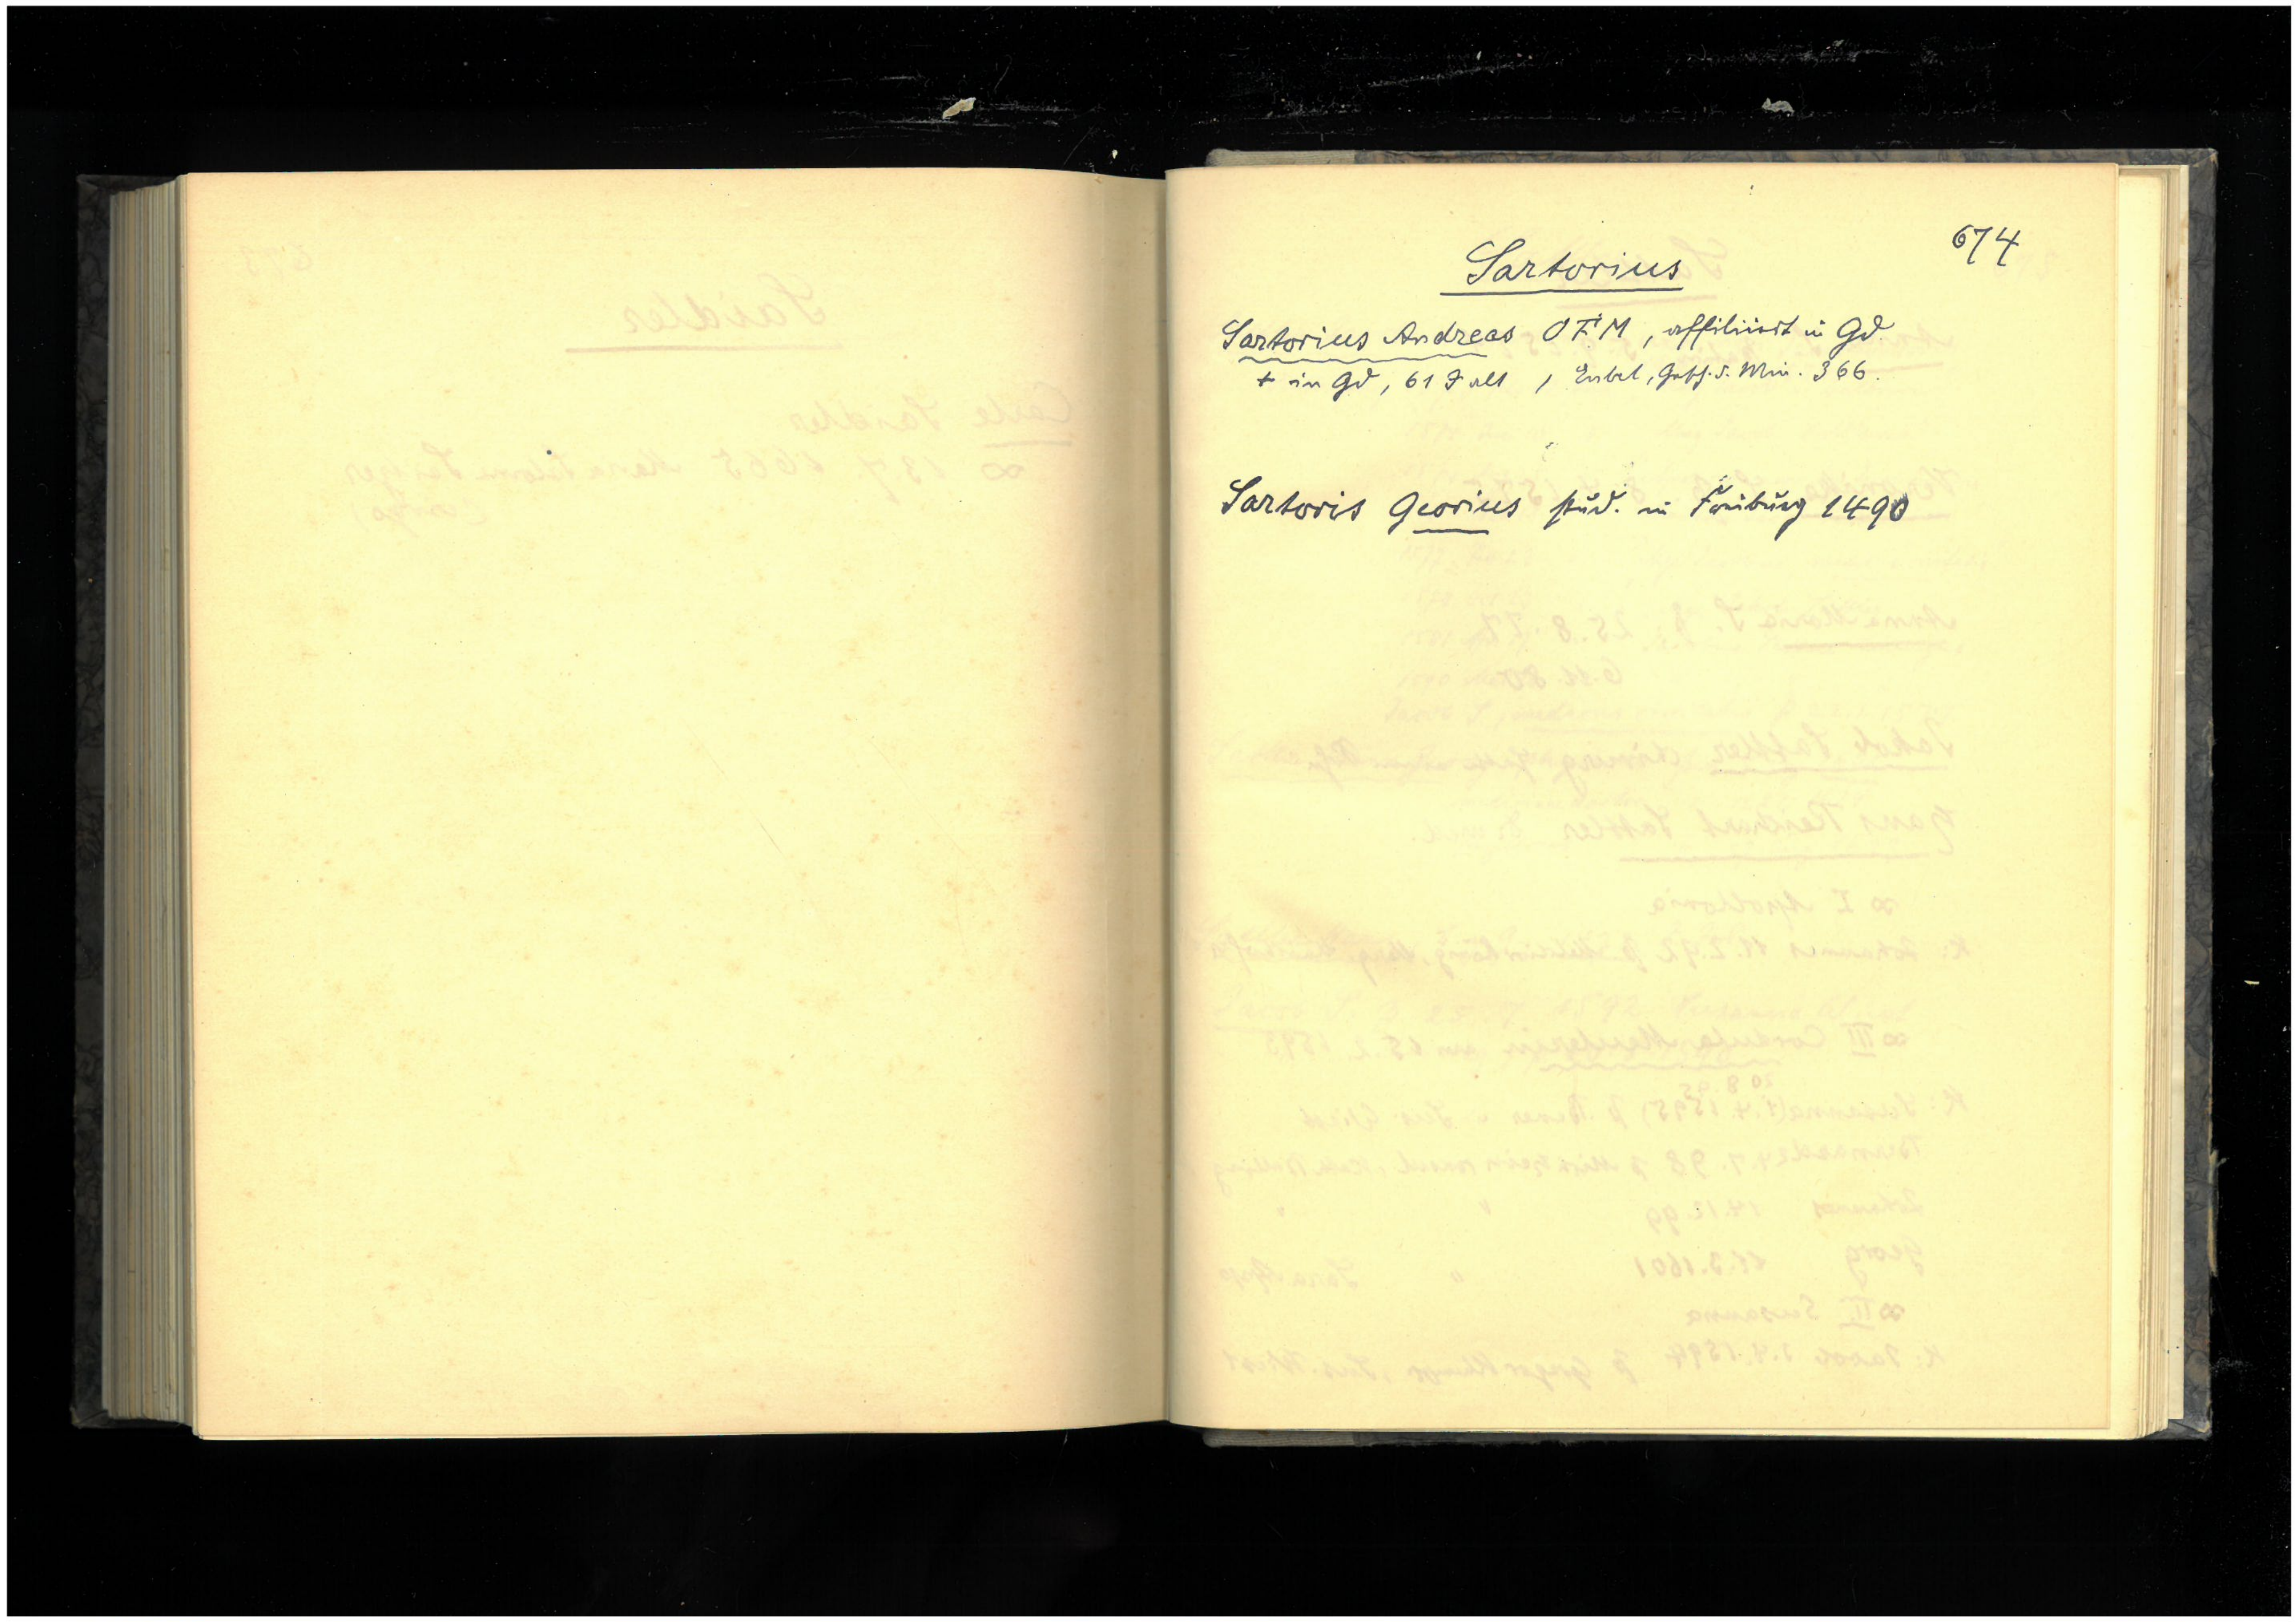 674
Sartorius
Sartorius Andreas OFM, affiliiert in Gd.
+ in Gd, 61 J alt, Eubel, Gesch. d. Min. 366.
Sartoris Georius stud. in Freiburg 1490